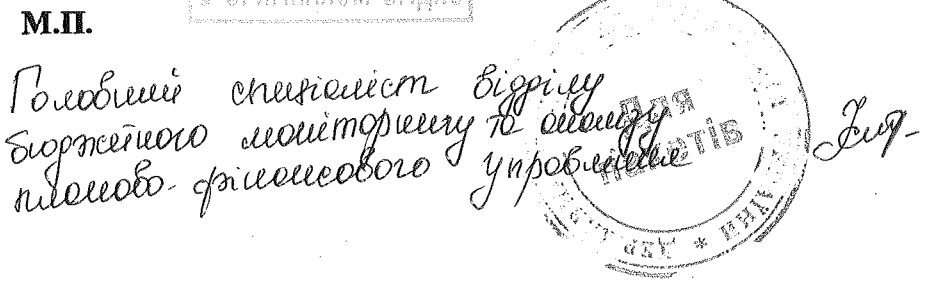 М.П.
Головний спеціаліст відділу
бюджетного моніторингу та аналізу
планово-фінансового управління
Для
пакетів